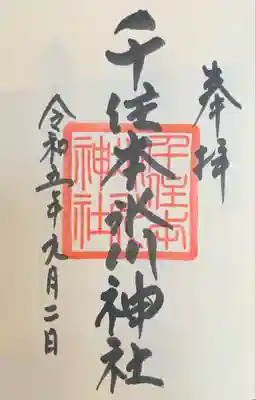 奉拝
千住本氷川神社
千住本氷川神社
令和五年九月二日